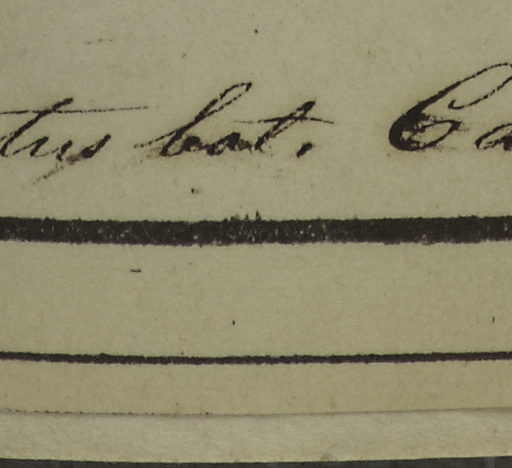 tus bat. Ca